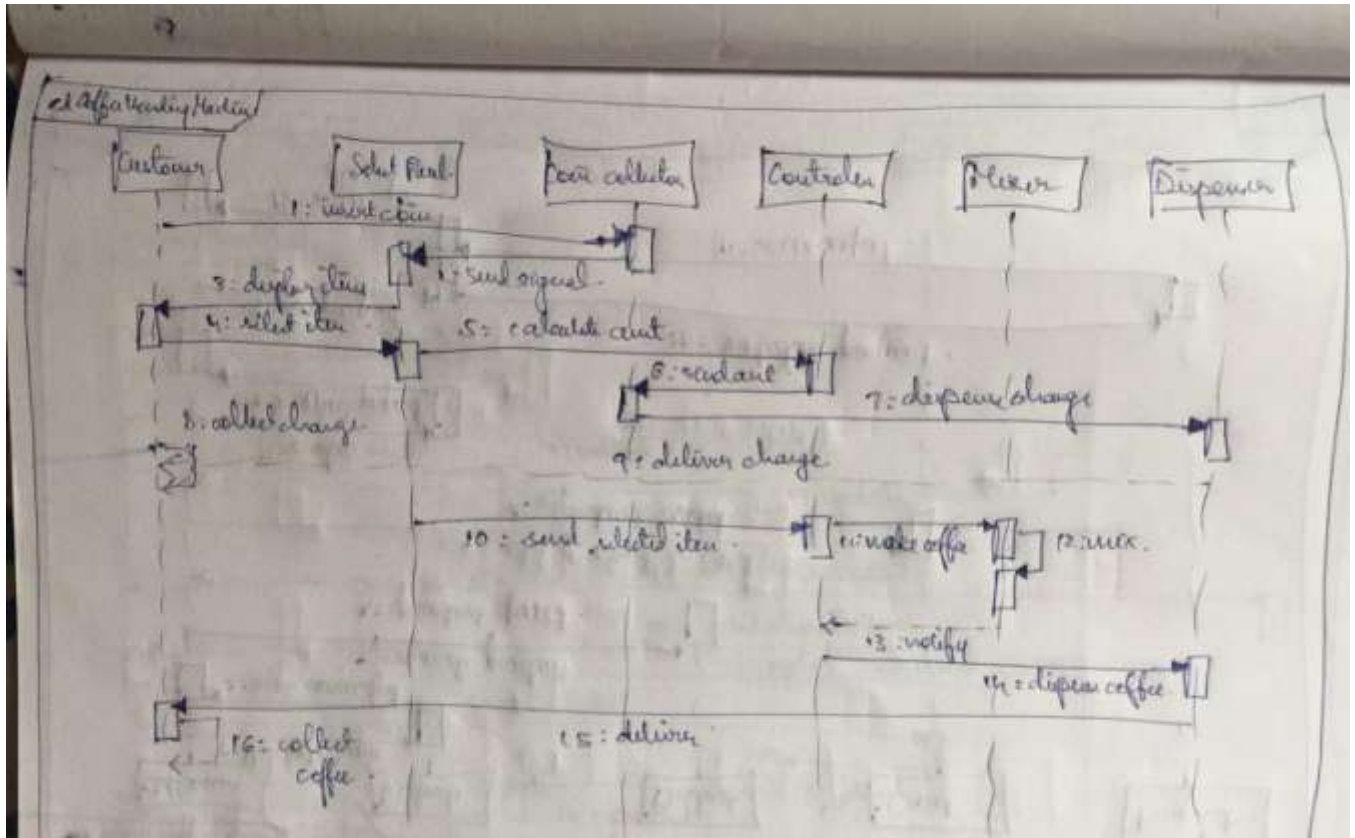 sd Coffee Vending Machine
Customer
Select Panel
Coin collector
Controller
Mixer
Dispenser
1: insert coin
2: send signal.
3: display item
4: select item
5: calculate amt
6: send amt
7: dispense change
8: collect change.
9: deliver change
10: send selected item.
11: make coffee
12: mix.
13: notify
14: dispense coffee
15: deliver
16: collect
coffee.